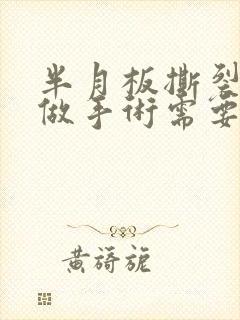 半月板撕裂
做手術需要
黄旖旎